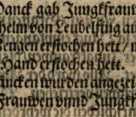 Danck gab Jungkfraw
helm von Leubelfing au
Zeugen erstochen hett / w
Hand erstochen hett.
tucken wurden angezei
Frauwen vnnd Jungkf